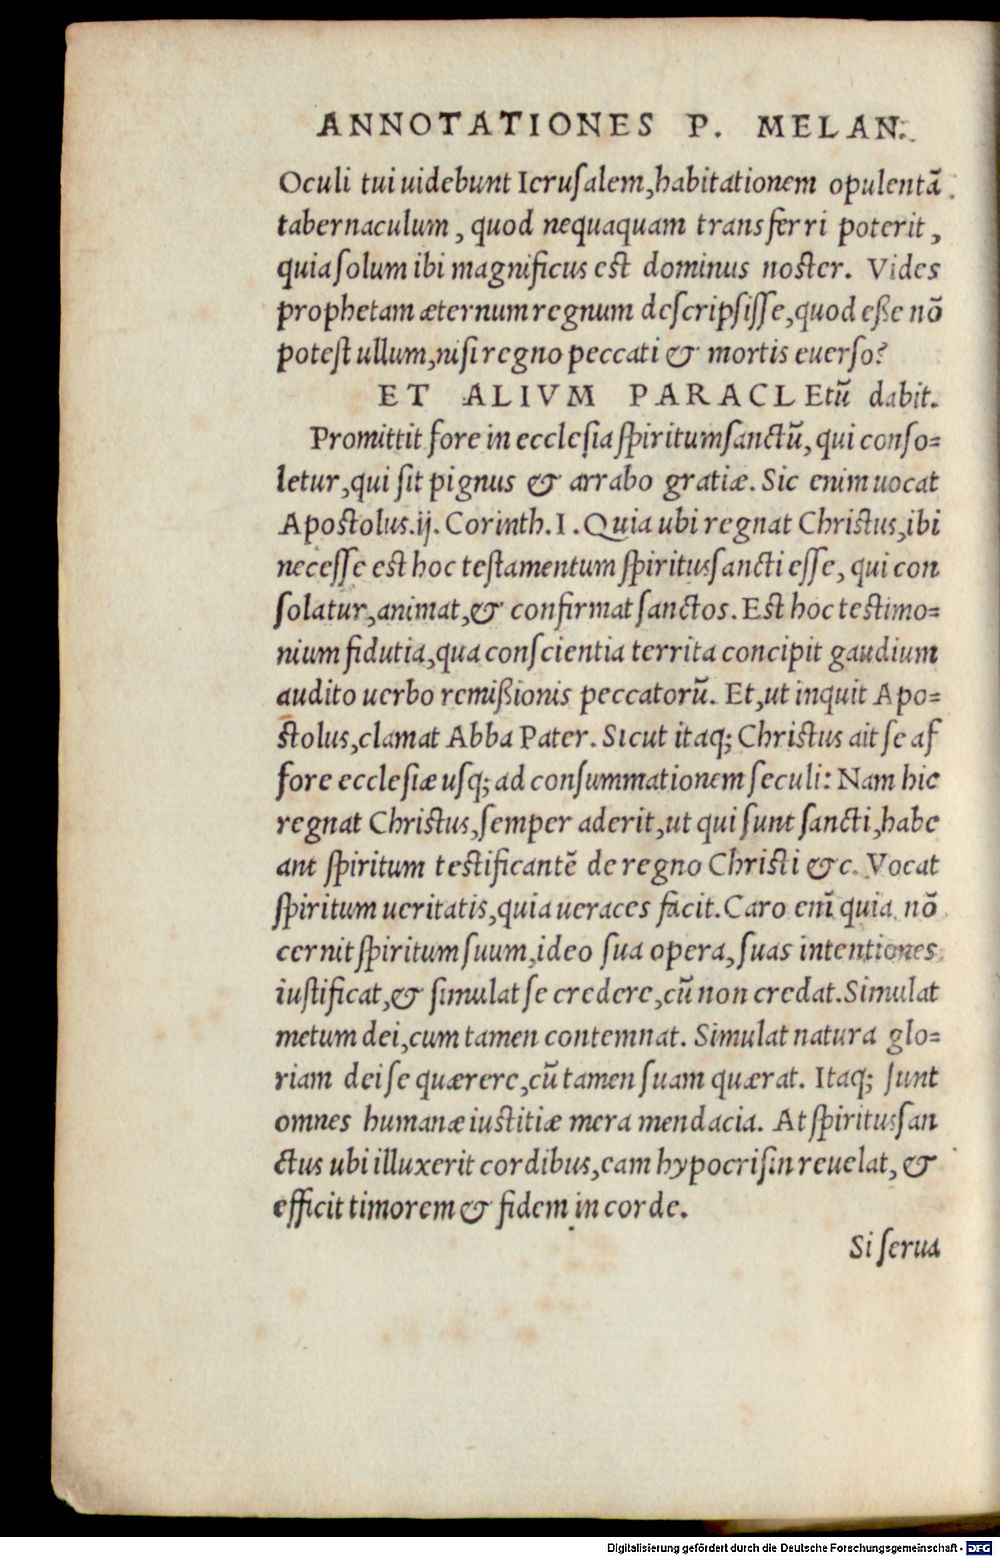 ANNOTATIONES P. MELAN.
Oculi tui uidebunt Ieruſalem, habitationem opulentā
tabernaculum, quod nequaquam transferri poterit,
quia ſolum ibi magnificus est dominus noster. Vides
prophetam æternum regnum deſcripſiſſe, quod eße nō
poteſt ullum, niſi regno peccati & mortis euerſo?
ET ALIVM PARACLEtū dabit.
Promittit fore in eccleſia ſpiritumſanctū, qui conſo=
letur, qui ſit pignus & arrabo gratiæ. Sic enim uocat
Apostolus.ij. Corinth. I. Quia ubi regnat Christus, ibi
neceſſe est hoc teſtamentum ſpirituſſancti eſſe, qui con
ſolatur, animat, & confirmat ſanctos. Est hoc testimo=
nium fidutia, qua conſcientia territa concipit gaudium
audito uerbo remißionis peccatorū. Et, ut inquit Apo=
stolus, clamat Abba Pater. Sicut itaq; Christus ait ſe af
fore eccleſiæ uſq; ad conſummationem ſeculi: Nam hic
regnat Christus, ſemper aderit, ut qui ſunt ſancti, habe
ant ſpiritum testificantē de regno Christi &c. Vocat
ſpiritum ueritatis, quia ueraces facit. Caro enī quia nō
cernit ſpiritum ſuum, ideo ſua opera, ſuas intentiones
iuſtificat, & ſimulat ſe credere, cū non credat. Simulat
metum dei, cum tamen contemnat. Simulat natura glo=
riam dei ſe quærere, cū tamen ſuam quærat. Itaq; ſunt
omnes humanæ iustitiæ mera mendacia. At ſpirituſſan
ctus ubi illuxerit cordibus, eam hypocriſin reuelat, &
efficit timorem & fidem in corde.
Si ſerua
Digitalisierung gefördert durch die Deutsche Forschungsgemeinschaft - DFG